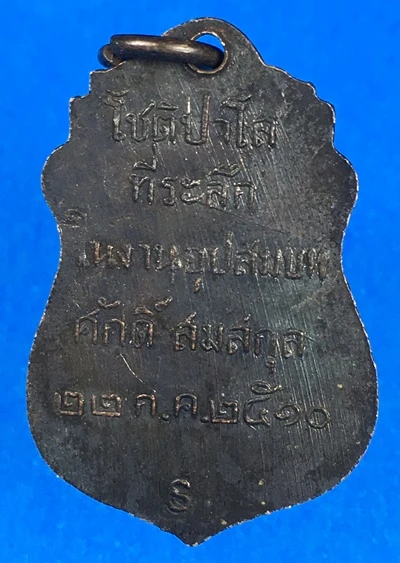 โชติปาโล
ที่ระลึก
ในงานอุปสมบท
ศักดิ์ สมสกุล
๒๒ ก.ค.๒๕๑๐
ร